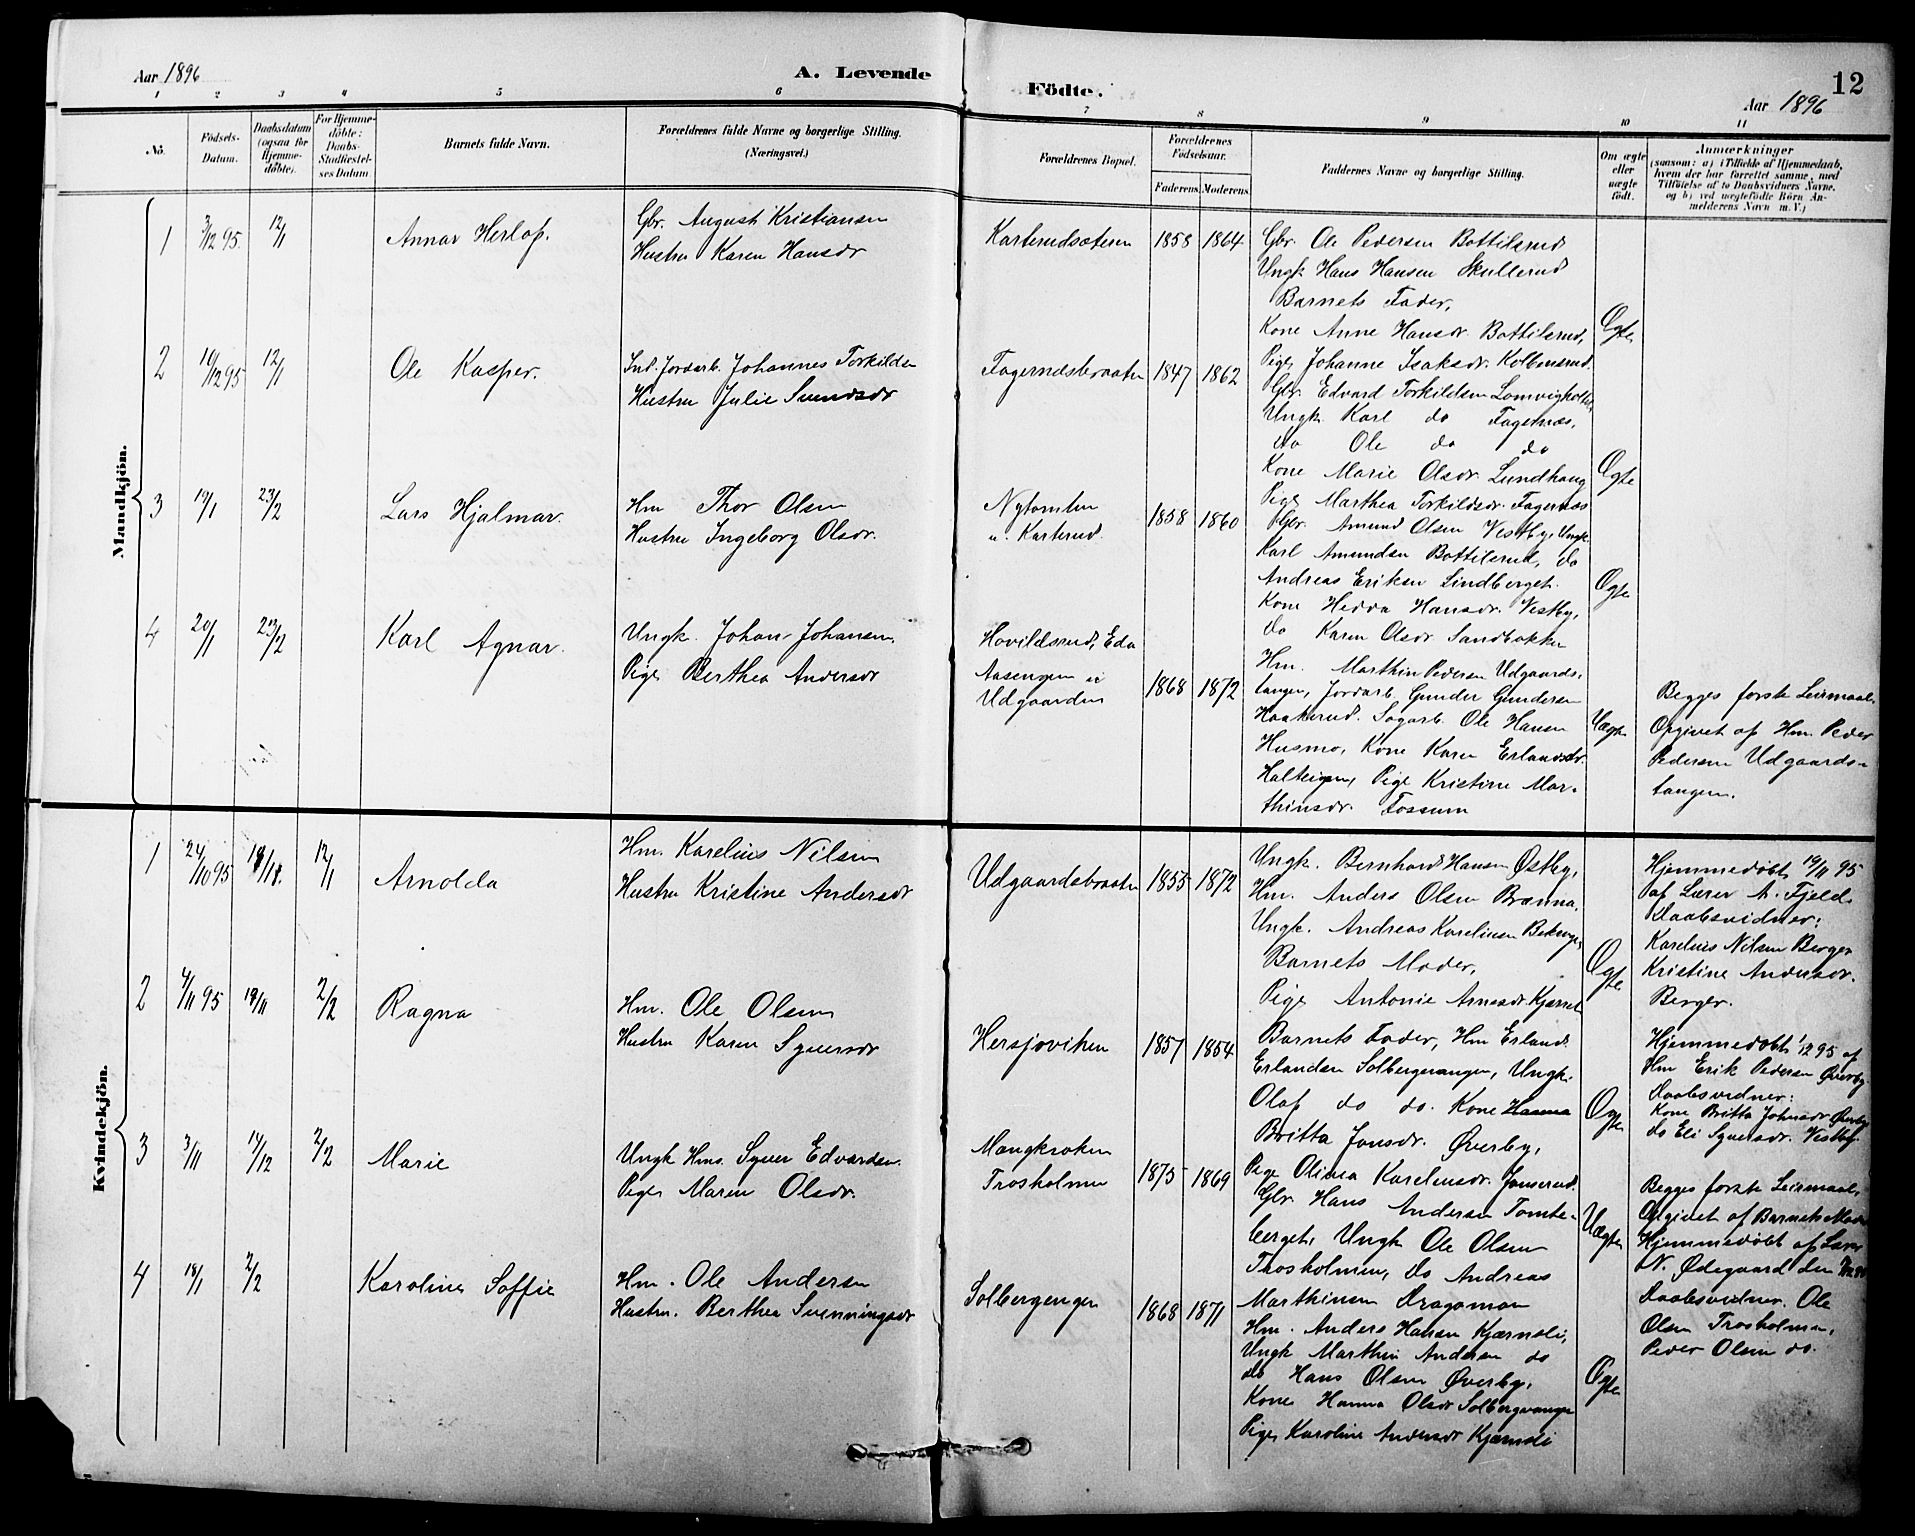 Aar 1896
A. Levende
Födte.
12
Aar 1896
1 2 3 4 5 6 7 8 9 10 11
No.
Födsels-
Datum.
Daabsdatum
(ogsaa for
Hjemme-
døbte).
For Hjemme-
døbte:
Daabs-
Stadfæstel-
ses Datum
Barnets fulde Navn.
Forældrenes fulde Navne og borgerlige Stilling.
(Næringsvei.)
Forældrenes Bopæl.
Forældrenes
Födselsaar.
Faderens. Moderens.
Faddernes Navne og borgerlige Stilling.
Om ægte
eller
uægte
født.
Anmærkninger
(saasom: a) i Tilfælde af Hjemmedaab,
hvem der har forrettet samme, med
Tilføielse af to Daabsvidners Navne,
og b) ved uægtefødte Börn An-
melderens Navn m. V.)
Mandkjön.
1 3/12 95. 12/1 Annar Herlof.
Gbr. August Kristiansen
Hustru Karen Hansdr
Karterudsæteren 1858 1864
Gbr. Ole Pedersen Bottilsrud
Ungk Hans Hansen Skullerud
Barnets Fader,
Kone Anne Hansdr. Bottilsrud,
Pige Johanne Isaksdr. Kolbensrud.
Ægte
2 19/12 95 12/1 Ole Kasper.
Ind. Jordarb. Johannes Torkildsen
Hustru Julie Svendsdr
Fagernæsbraaten 1847 1862
Gbr. Edvard Torkildsen Lomvigholtet
Ungk. Karl do Fagernæs,
do Ole do do
Kone Marie Olsdr. Lundhaug
Pige Marthea Torkildsdr. Fagernæs
Ægte
3 19/1 23/2 Lars Hjalmar.
Hm Thor Olsen
Hustru Ingeborg Olsdr.
Nytomten
u. Karterud. 1858 1860
Gbr. Amund Olsen Vestby, Ungk.
Karl Amundsen Bottilsrud, do
Andreas Eriksen Lindberget.
Kone Hedda Hansdr. Vestby,
do Karen Olsdr. Sandbakken
Ægte
4 20/1 23/2 Karl Agnar.
Ungk. Johan Johansen.
Pige Berthea Andersdr
Hovildsrud, Eda
Aasengen u
Udgaarden 1868 1872
Hm. Marthin Pedersen Udgaards-
tangen, Jordarb. Gunder Gundersen
Haakerud. Sagarb. Ole Hansen
Husmo, Kone Karen Erlandsdr.
Halteigen, Pige Kristine Mar-
thinsdr. Fossum
Uægte
Begges første Leiermaal.
Opgivet af Hm. Peder
Pedersen Udgaards-
tangen.
Kvindekjön.
1 24/10 95 12/1 Arnolda
Hm. Karelius Nilsen
Hustru Kristine Andersdr
Udgaardsbraaten 1855 1872
Ungk. Bernhard Hansen Østby,
Hm. Anders Olsen Brænna.
Ungk. Andreas Kareliusen
Barnets Moder,
Pige Antonie Arnesdr.
Ægte
Hjemmedøbt 19/11 95
af Lærer A. Fjeld.
Daabsvidner:
Karelius Nilsen Berger
Kristine Andersdr.
Berger.
2 4/11 95 2/2 Ragna
Hm. Ole Olsen
Hustru Karen Syversdr
Hersjøviken 1857 1854
Barnets Fader, Hm Erland
Erlandsen Solbergvangen, Ungk.
Olaf do do. Kone
Britta Jonsdr. Øverby,
Pige Olivia Kareliusdr. Jonserud.
Ægte
Hjemmedøbt 1/12 95 af
Hm Erik Pedersen Øverby.
Daabsvidner:
Kone Britta Johnsdr Øverby
do Eli Syversdr. Vestby.
3 3/11 14/12 2/2 Marie
Ungk Hms. Syver Edvardsen.
Pige Maren Olsdr.
Mangkroken
Trosholmen 1875 1869
Gbr. Hans Andersen Tomte-
berget, Ungk Ole Olsen
Trosholmen, do Andreas
Marthinsen Dragomoen
Uægte
Begges første Leiermaal.
Opgivet af Barnets Moder
Hjemmedøbt af Lærer
N. Ødegaard den
Daabsvidner. Ole
Olsen Trosholmen,
Peder Olsen do.
4 18/1 2/2 Karoline Soffie
Hm. Ole Andersen
Hustru. Berthea Svenningsdr
Solbergengen 1868 1871
Hm. Anders Hansen Kjærnsli,
Ungk Marthin Andersen do
do Hans Olsen Øverby,
Kone Hanna Olsdr Solbergvangen
Pige Karoline Andersdr Kjærnsli
Ægte